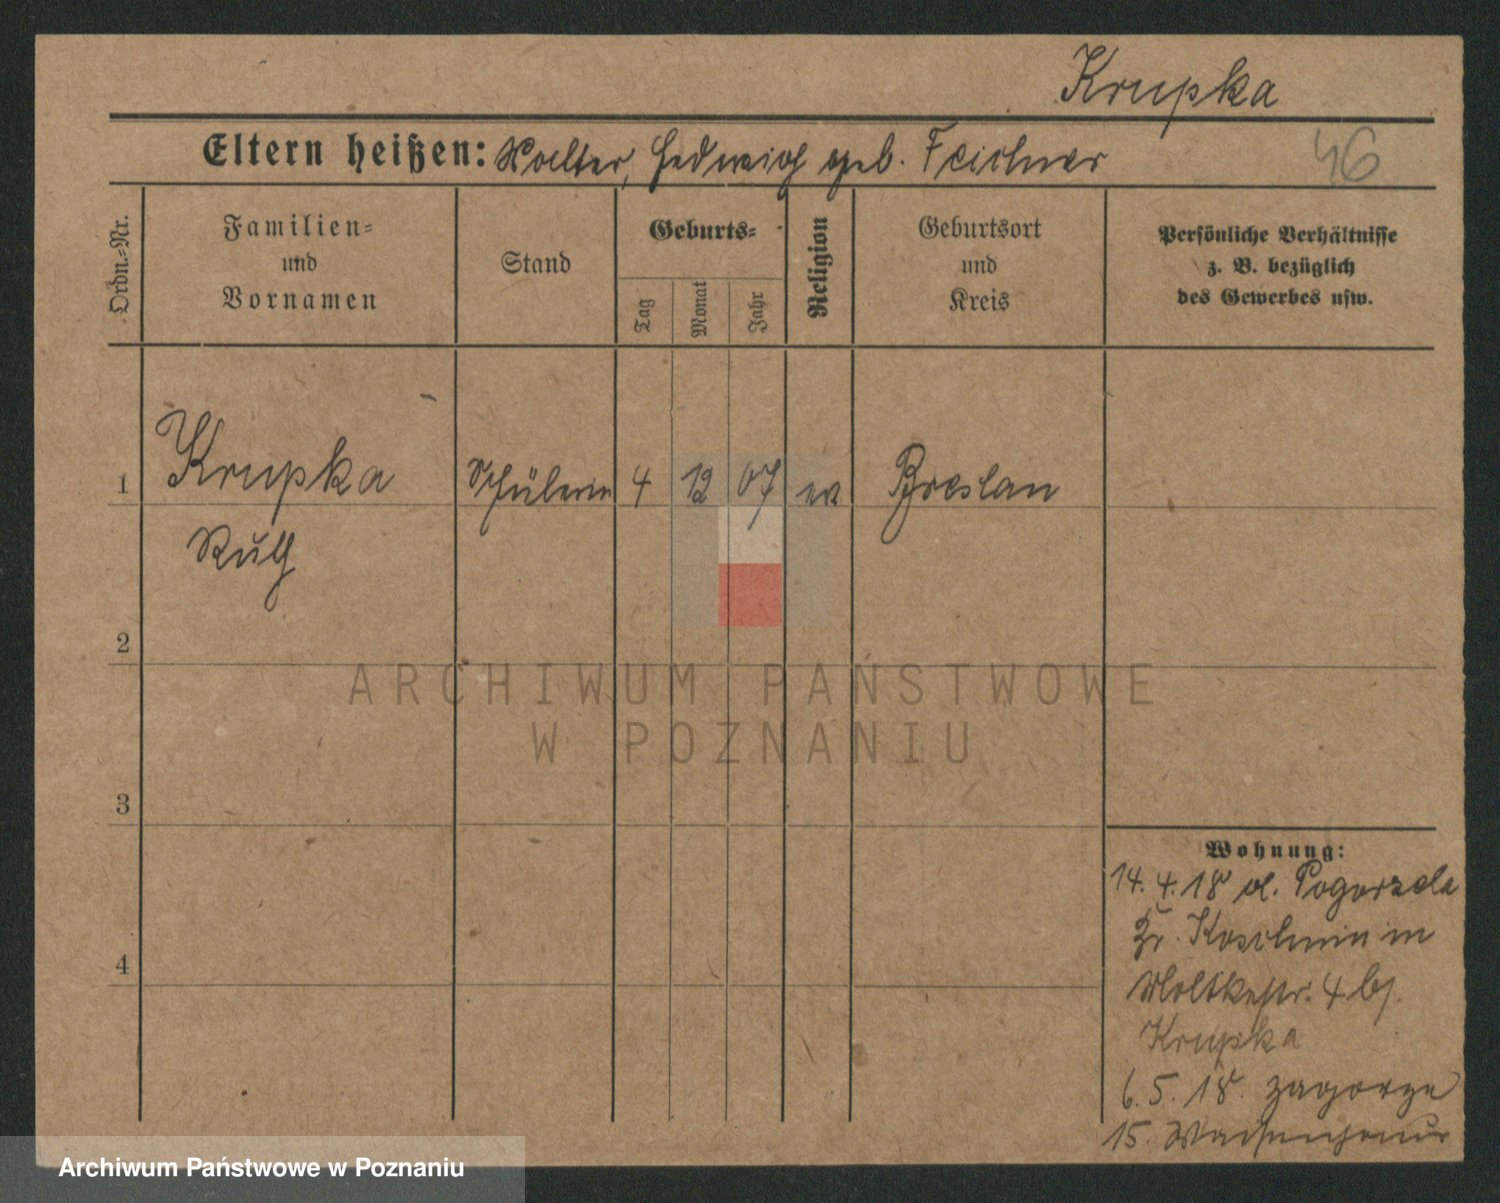 Krupka
Eltern heißen: Walter, Hedwig geb. Teichner
46
Ordn.-Nr.
Familien-
und
Vornamen
Stand
Geburts-
Tag
Monat
Jahr
Religion
Geburtsort
und
Kreis
Persönliche Verhältnisse
z. B. bezüglich
des Gewerbes usw.
1 Krupka Schülerin 4 12 07 ev Breslau
Ruth
2
3
4
Wohnung:
14. 4. 18 v. Pogorzela
Kr. Koschmin in
Moltkestr. 4 bj.
Krupka
6. 5. 18. Zagorze
15. Waisenhaus
ARCHIWUM PAŃSTWOWE
W POZNANIU
Archiwum Państwowe w Poznaniu